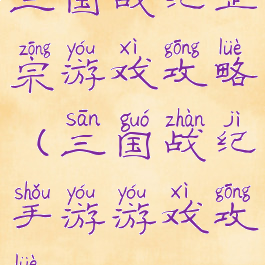 三国战纪正
zōng yóu xì gōng lüè
宗游戏攻略
sān guó zhàn jì
（三国战纪
shǒu yóu yóu xì gōng
手游游戏攻
lüè